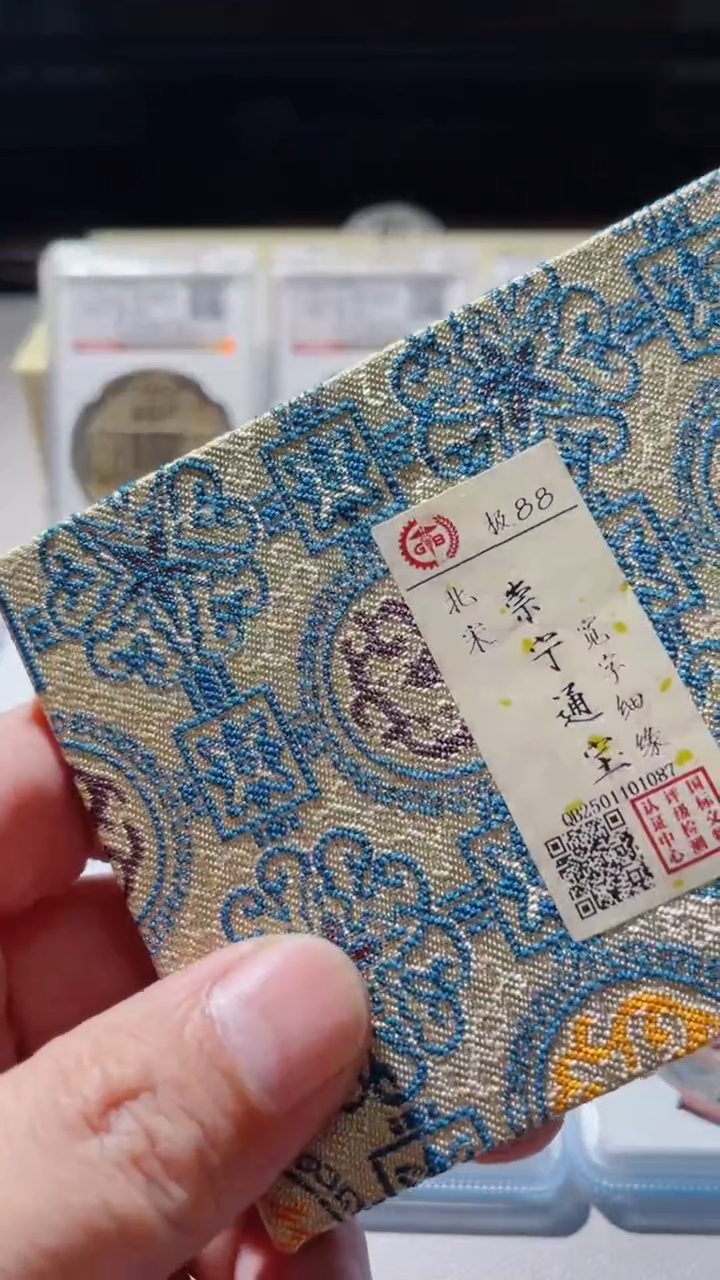 GB
极88
北宋
崇宁通宝
宽字细缘
QB2501101087
国标文
评级检测
认证中心